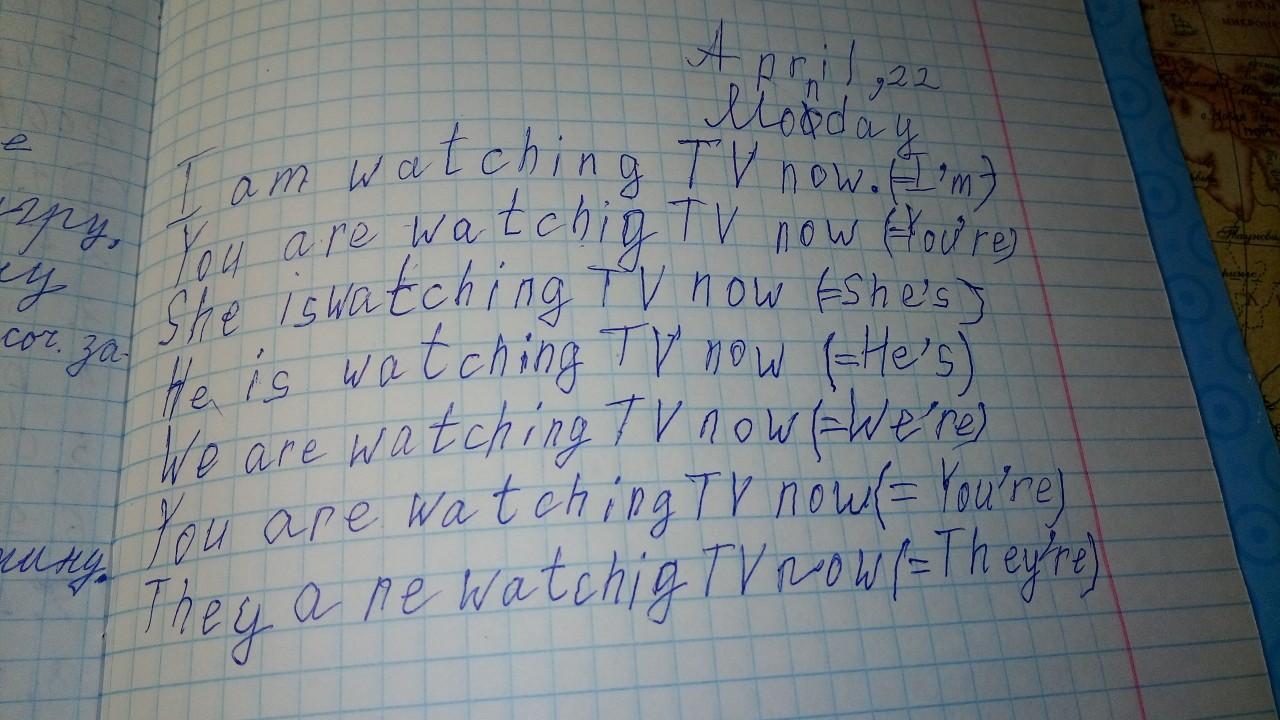 April, 22
Monday
I am watching TV now. (=I'm)
You are watchig TV now (=You're)
She is watching TV now (=She's)
He is watching TV now (=He's)
We are watching TV now (=We're)
You are watching TV now (= You're)
They are watchig TV now (=They're)
е
игру.
ну
соч. за-